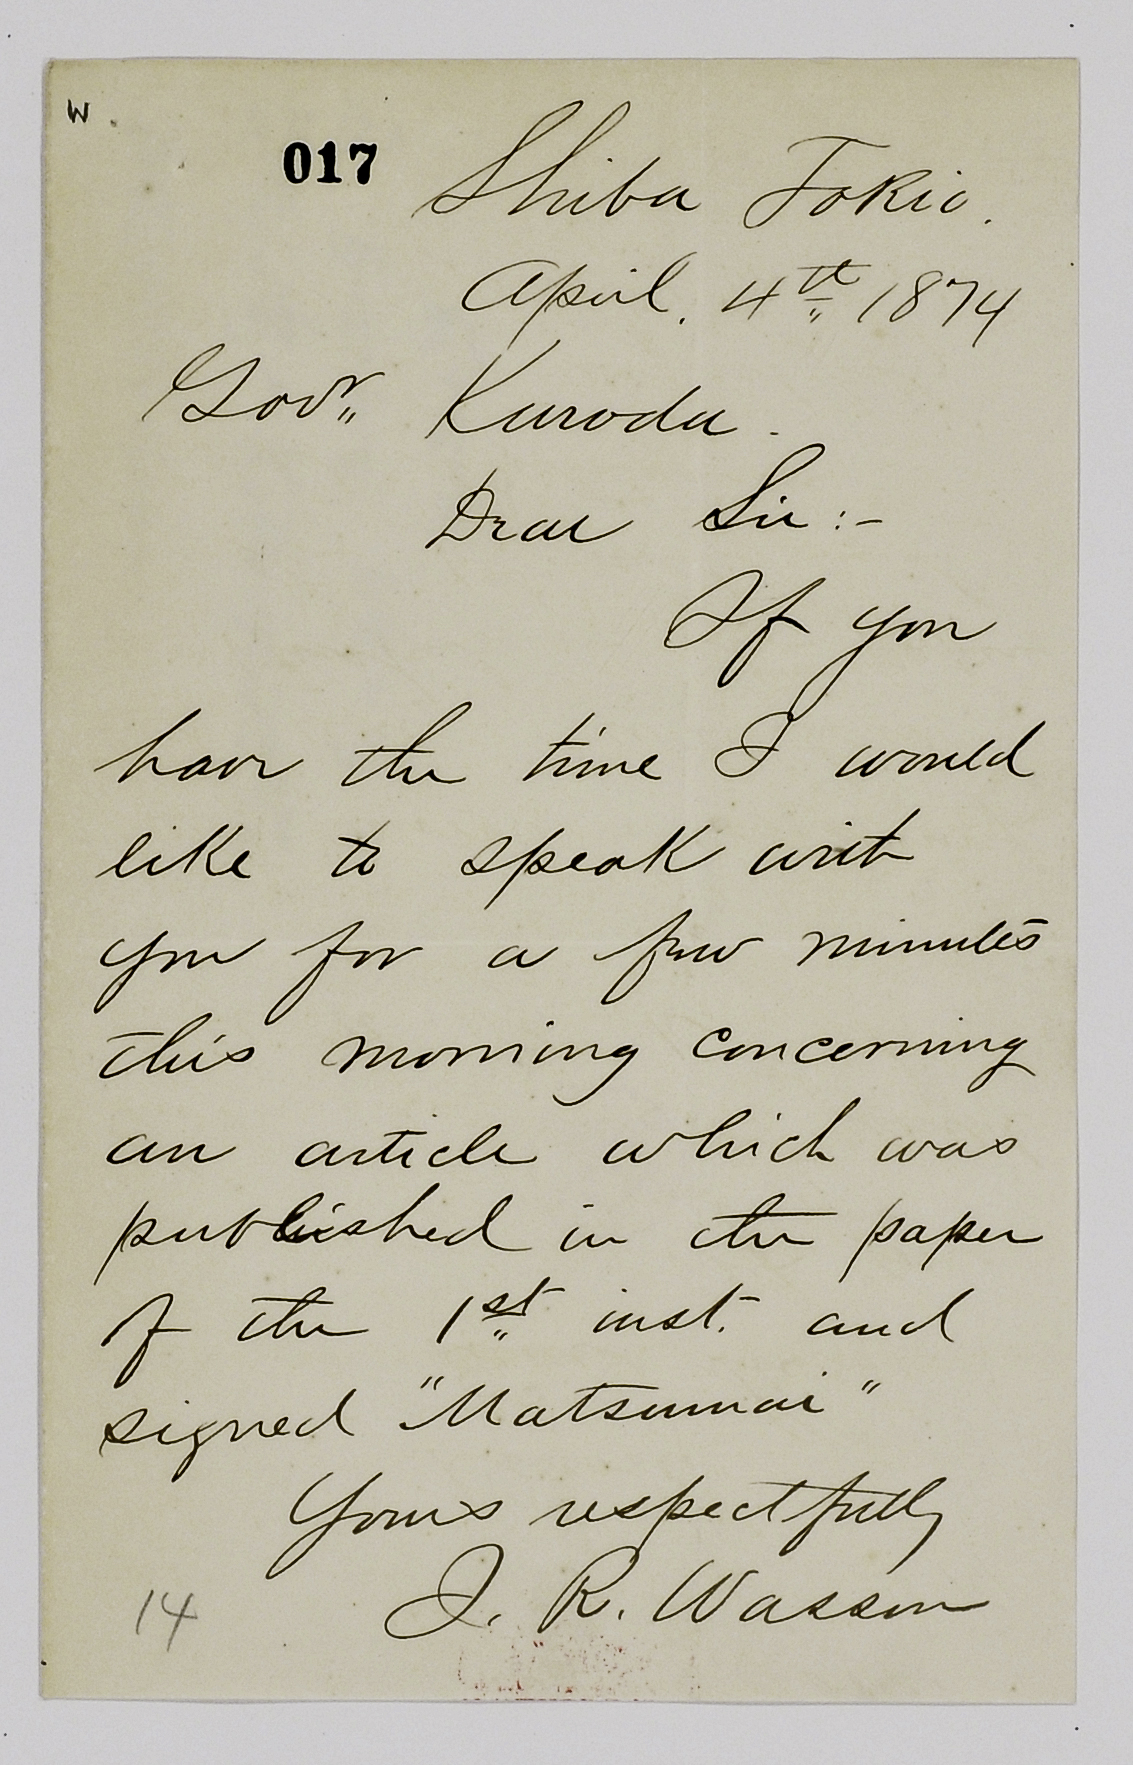 W
017
Shiba Tokio.
April. 4th 1874
Govr Kuroda.
Dear Sir :-
If you
have the time I would
like to speak with
you for a few minutes
this morning concerning
an article which was
published in the paper
of the 1st inst. and
signed "Matsumai"
Yours respectfully
J. R. Wasson
14